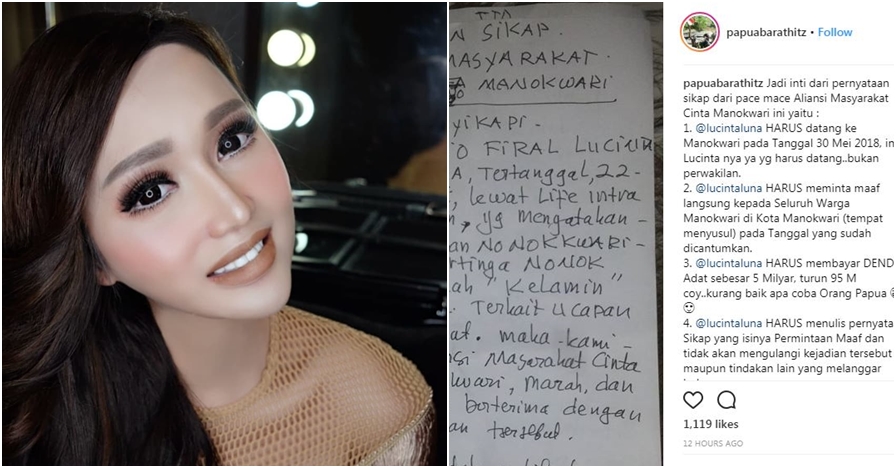 TTA
N SIKAP.
MASYARAKAT.
MANOKWARI
YIKAPI.
FIRAL LUCINTA
A, TERTANGGAL, 22-
, Lewat Life intra
, yg mengatakan -
an NONOKKWARI -
rtinga NONOK
ah "Kelamin"
. Terkait ucapan
at. maka kami -
si Masyarakat Cinta
kwari, marah, dan
berterima dengan
an tersebut.
papuabarathitz • Follow
papuabarathitz Jadi inti dari pernyataan
sikap dari pace mace Aliansi Masyarakat
Cinta Manokwari ini yaitu :
1. @lucintaluna HARUS datang ke
Manokwari pada Tanggal 30 Mei 2018, in
Lucinta nya ya yg harus datang..bukan
perwakilan.
2. @lucintaluna HARUS meminta maaf
langsung kepada Seluruh Warga
Manokwari di Kota Manokwari (tempat
menyusul) pada Tanggal yang sudah
dicantumkan.
3. @lucintaluna HARUS membayar DEND
Adat sebesar 5 Milyar, turun 95 M
coy..kurang baik apa coba Orang Papua
4. @lucintaluna HARUS menulis pernyata
Sikap yang isinya Permintaan Maaf dan
tidak akan mengulangi kejadian tersebut
maupun tindakan lain yang melanggar
1,119 likes
12 HOURS AGO